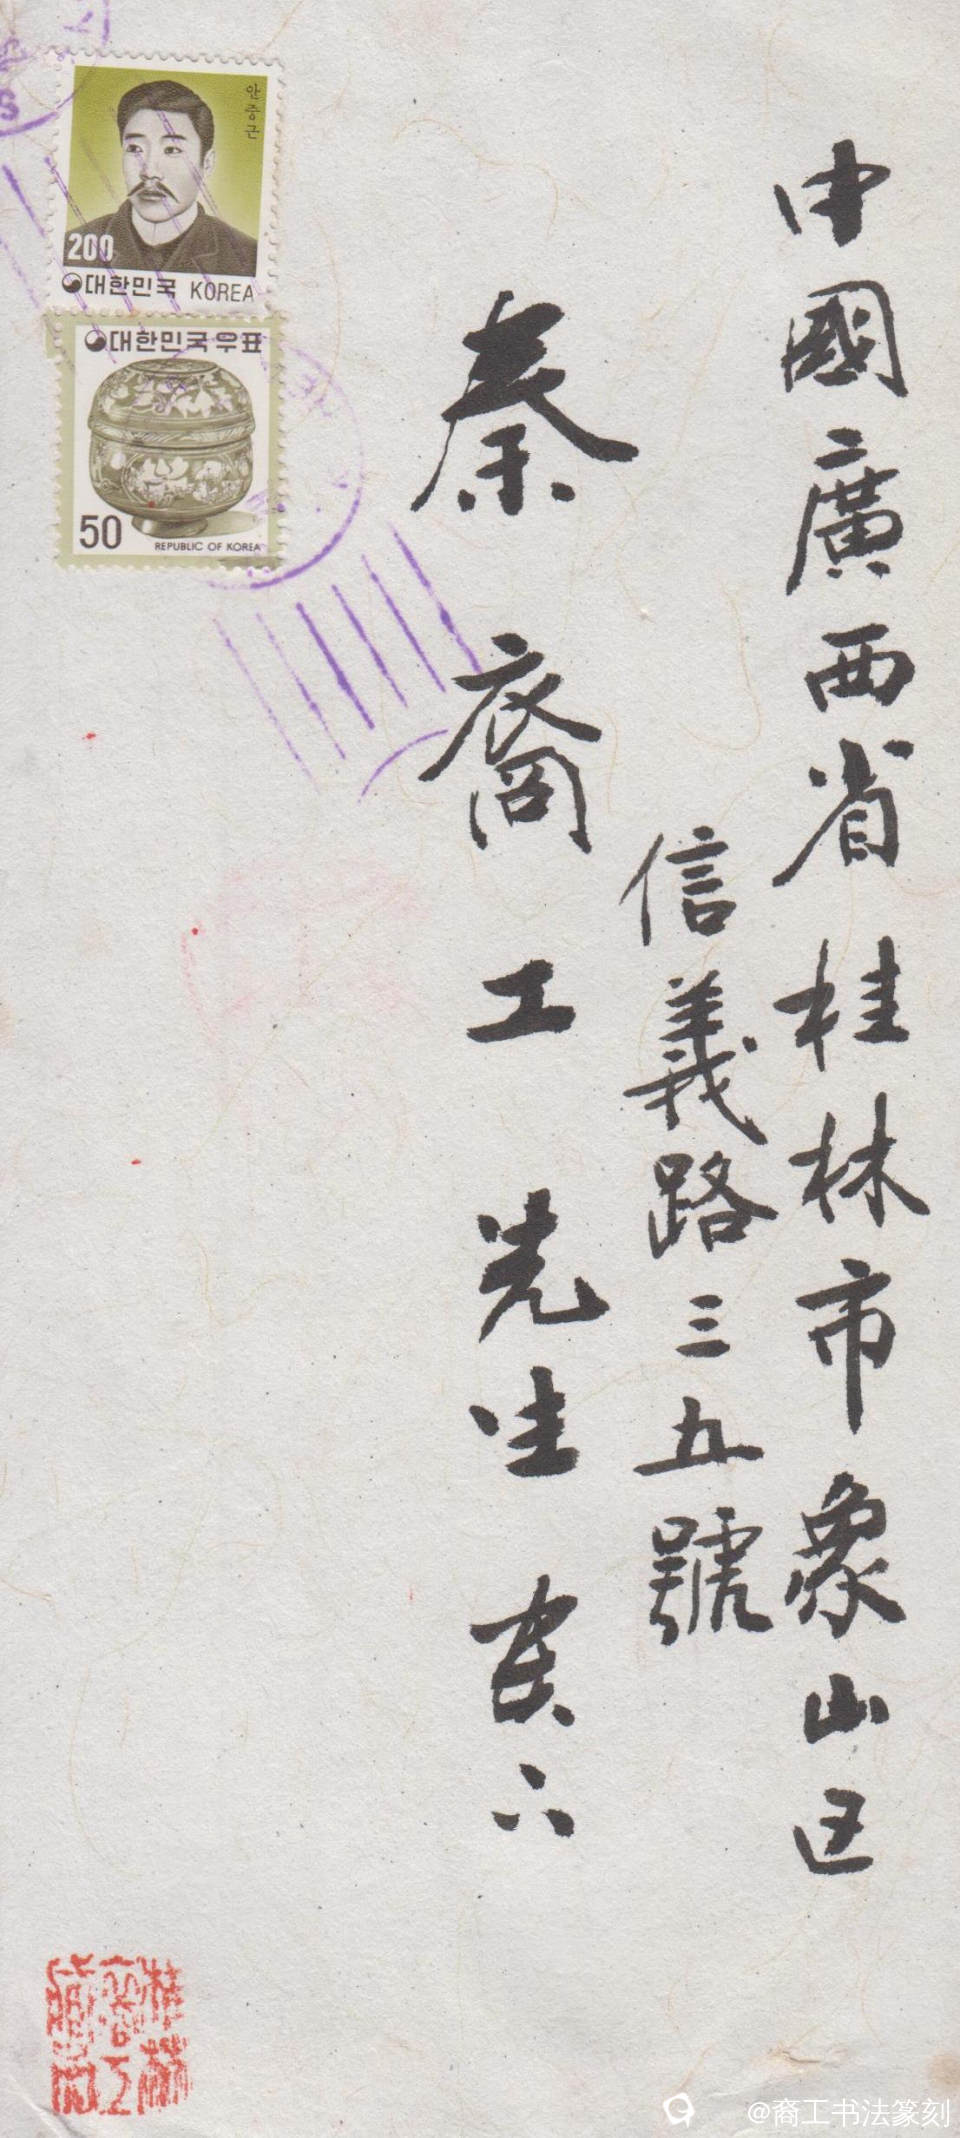 中國廣西省桂林市象山区
信義路三五號
秦裔工先生
안중근
200
대한민국 KOREA
대한민국우표
50
REPUBLIC OF KOREA
桂林
裔工
@裔工书法篆刻